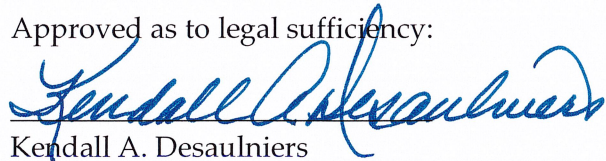 Approved as to legal sufficiency:
Kendall A. Desaulniers
Kendall A. Desaulniers